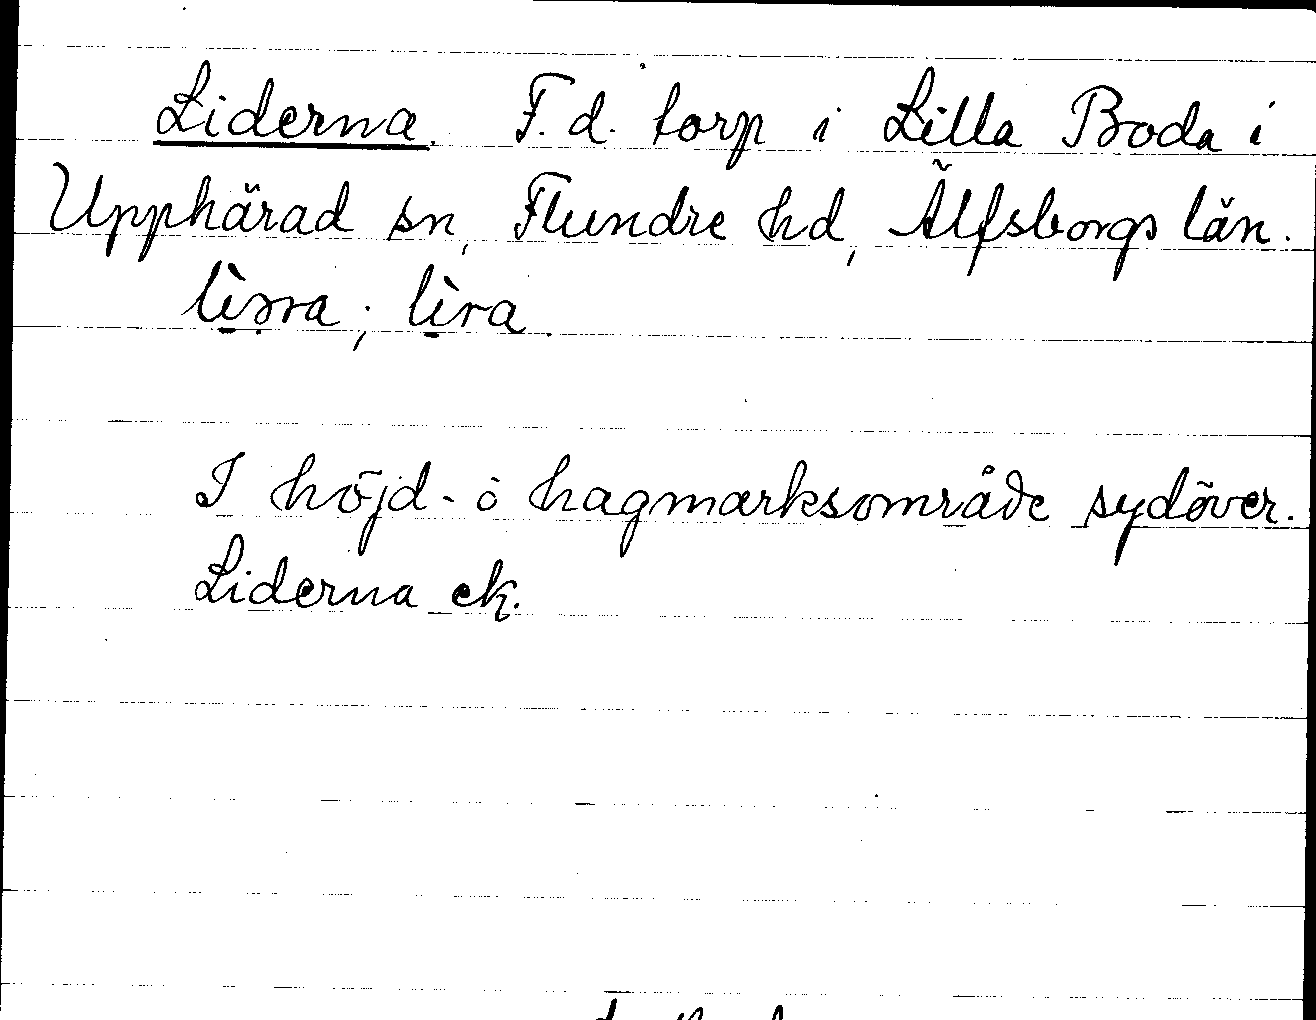 Liderna. F.d. torp i Lilla Boda i
Upphärad sn, Flundre hd, Älfsborgs län.
lìərra; lìra.
I höjd- o hagmarksområde sydöver.
Liderna ek.